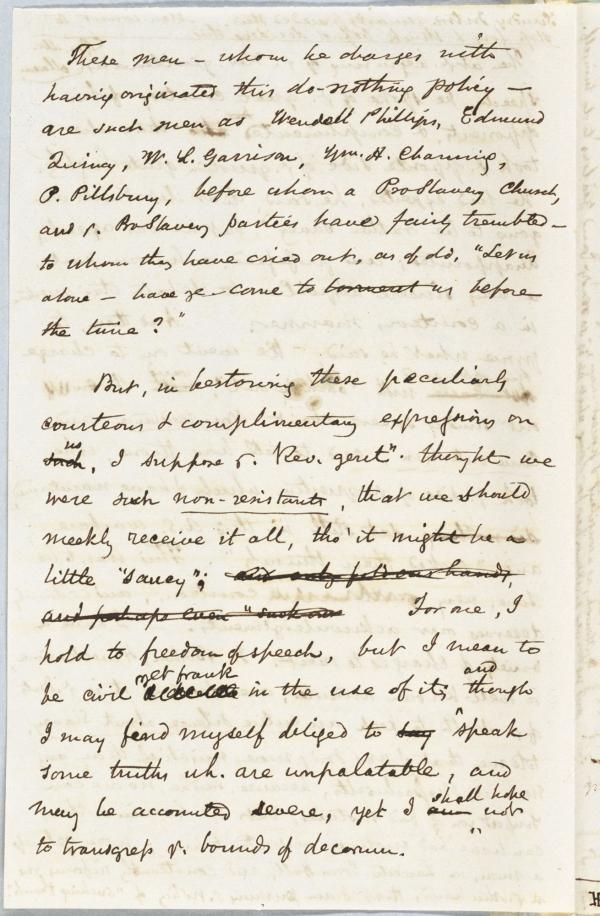 These men – whom he charges with
having originated this do-nothing policy –
are such men as Wendell Phillips, Edmund
Quincy, W. L. Garrison, Wm. H. Channing,
P. Pillsbury, before whom a ProSlavery Church,
and r. ProSlavery parties have fairly trembled –
to whom they have cried out, as of old, "Let us
alone – have ye come to torment us before
the time?"
But, in bestowing these peculiarly
courteous & complimentary expressions on
us
such, I suppose r. Rev. gent". thought we
were such non-resistants, that we should
meekly receive it all, tho' it might be a
little "saucy"; and only fold our hands,
and perhaps even "suck our For one, I
hold to freedom of speech, but I mean to
yet frank and
be civil in the use of it; though
I may find myself obliged to say "speak
some truths wh. are unpalatable, and
shall hope
may be accounted severe, yet I am not
to transgress r. bounds of decorum."